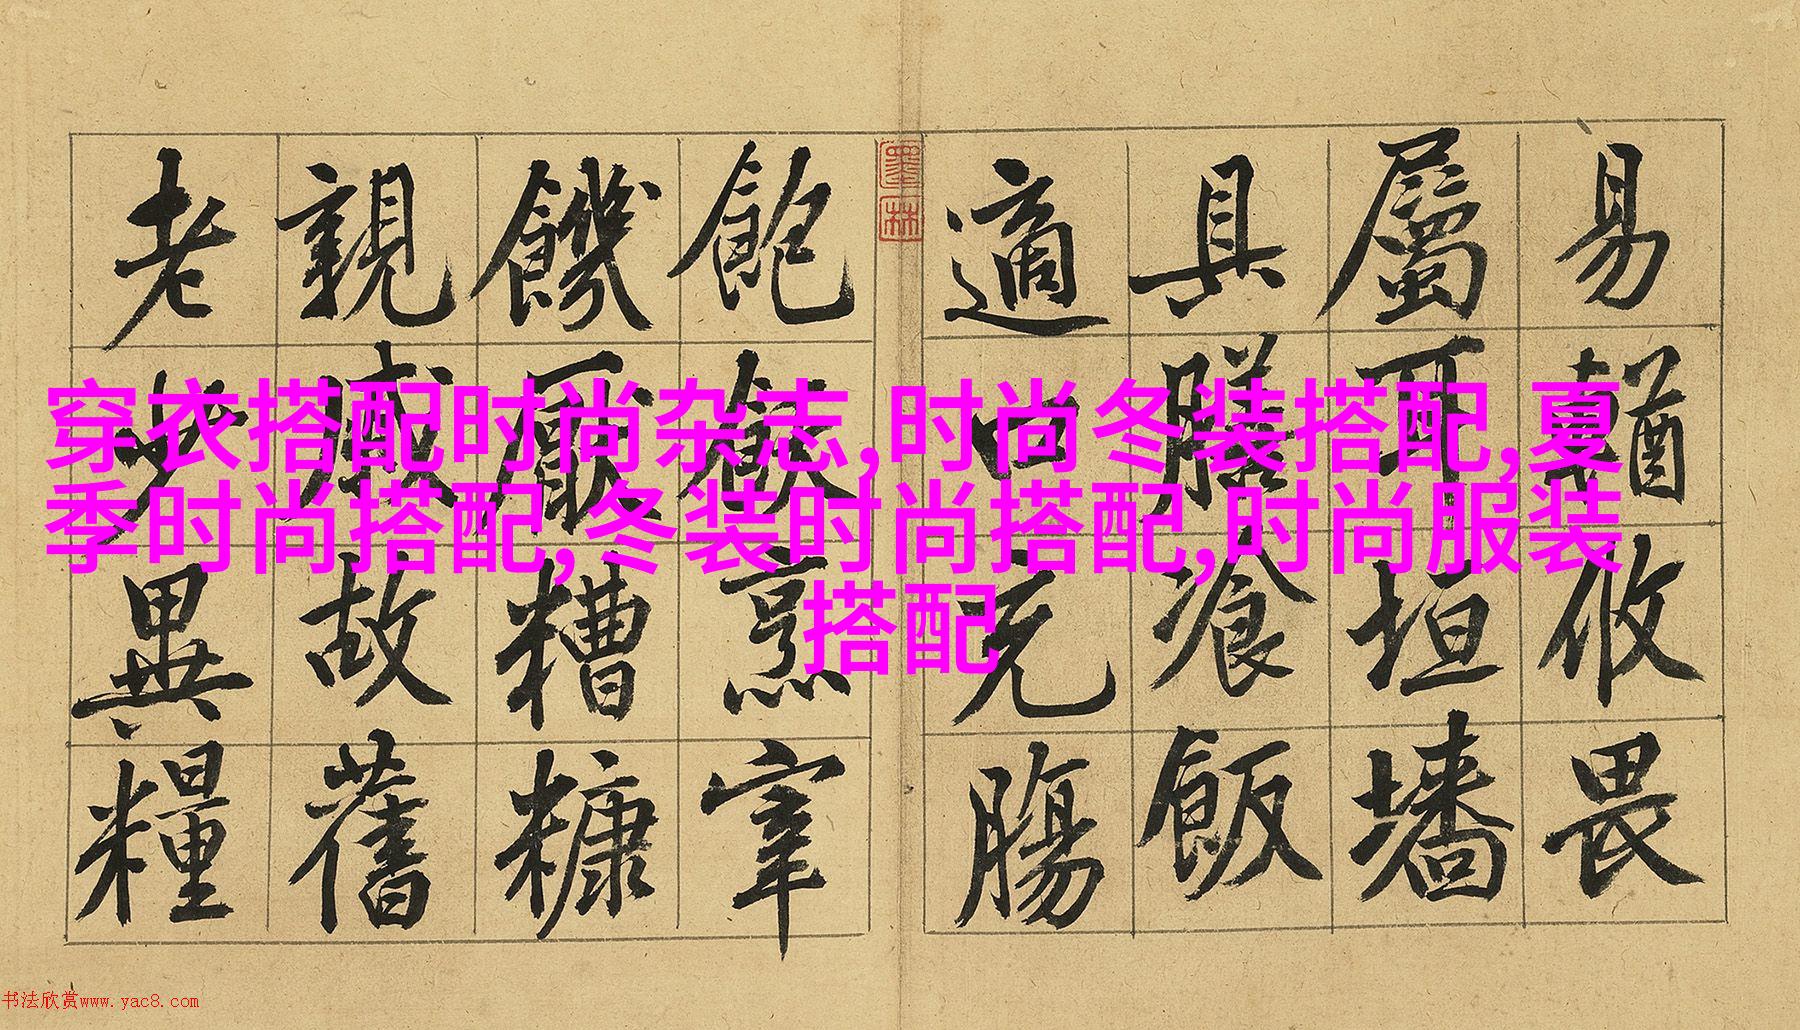 易輶攸畏
屬耳垣墻
具膳飡飯
適口充腸
墨林
飽飫烹宰
饑厭糟糠
親戚故舊
老少異糧
穿衣搭配时尚杂志,时尚冬装搭配,夏
季时尚搭配,冬装时尚搭配,时尚服装
搭配
书法欣赏www.yac8.com